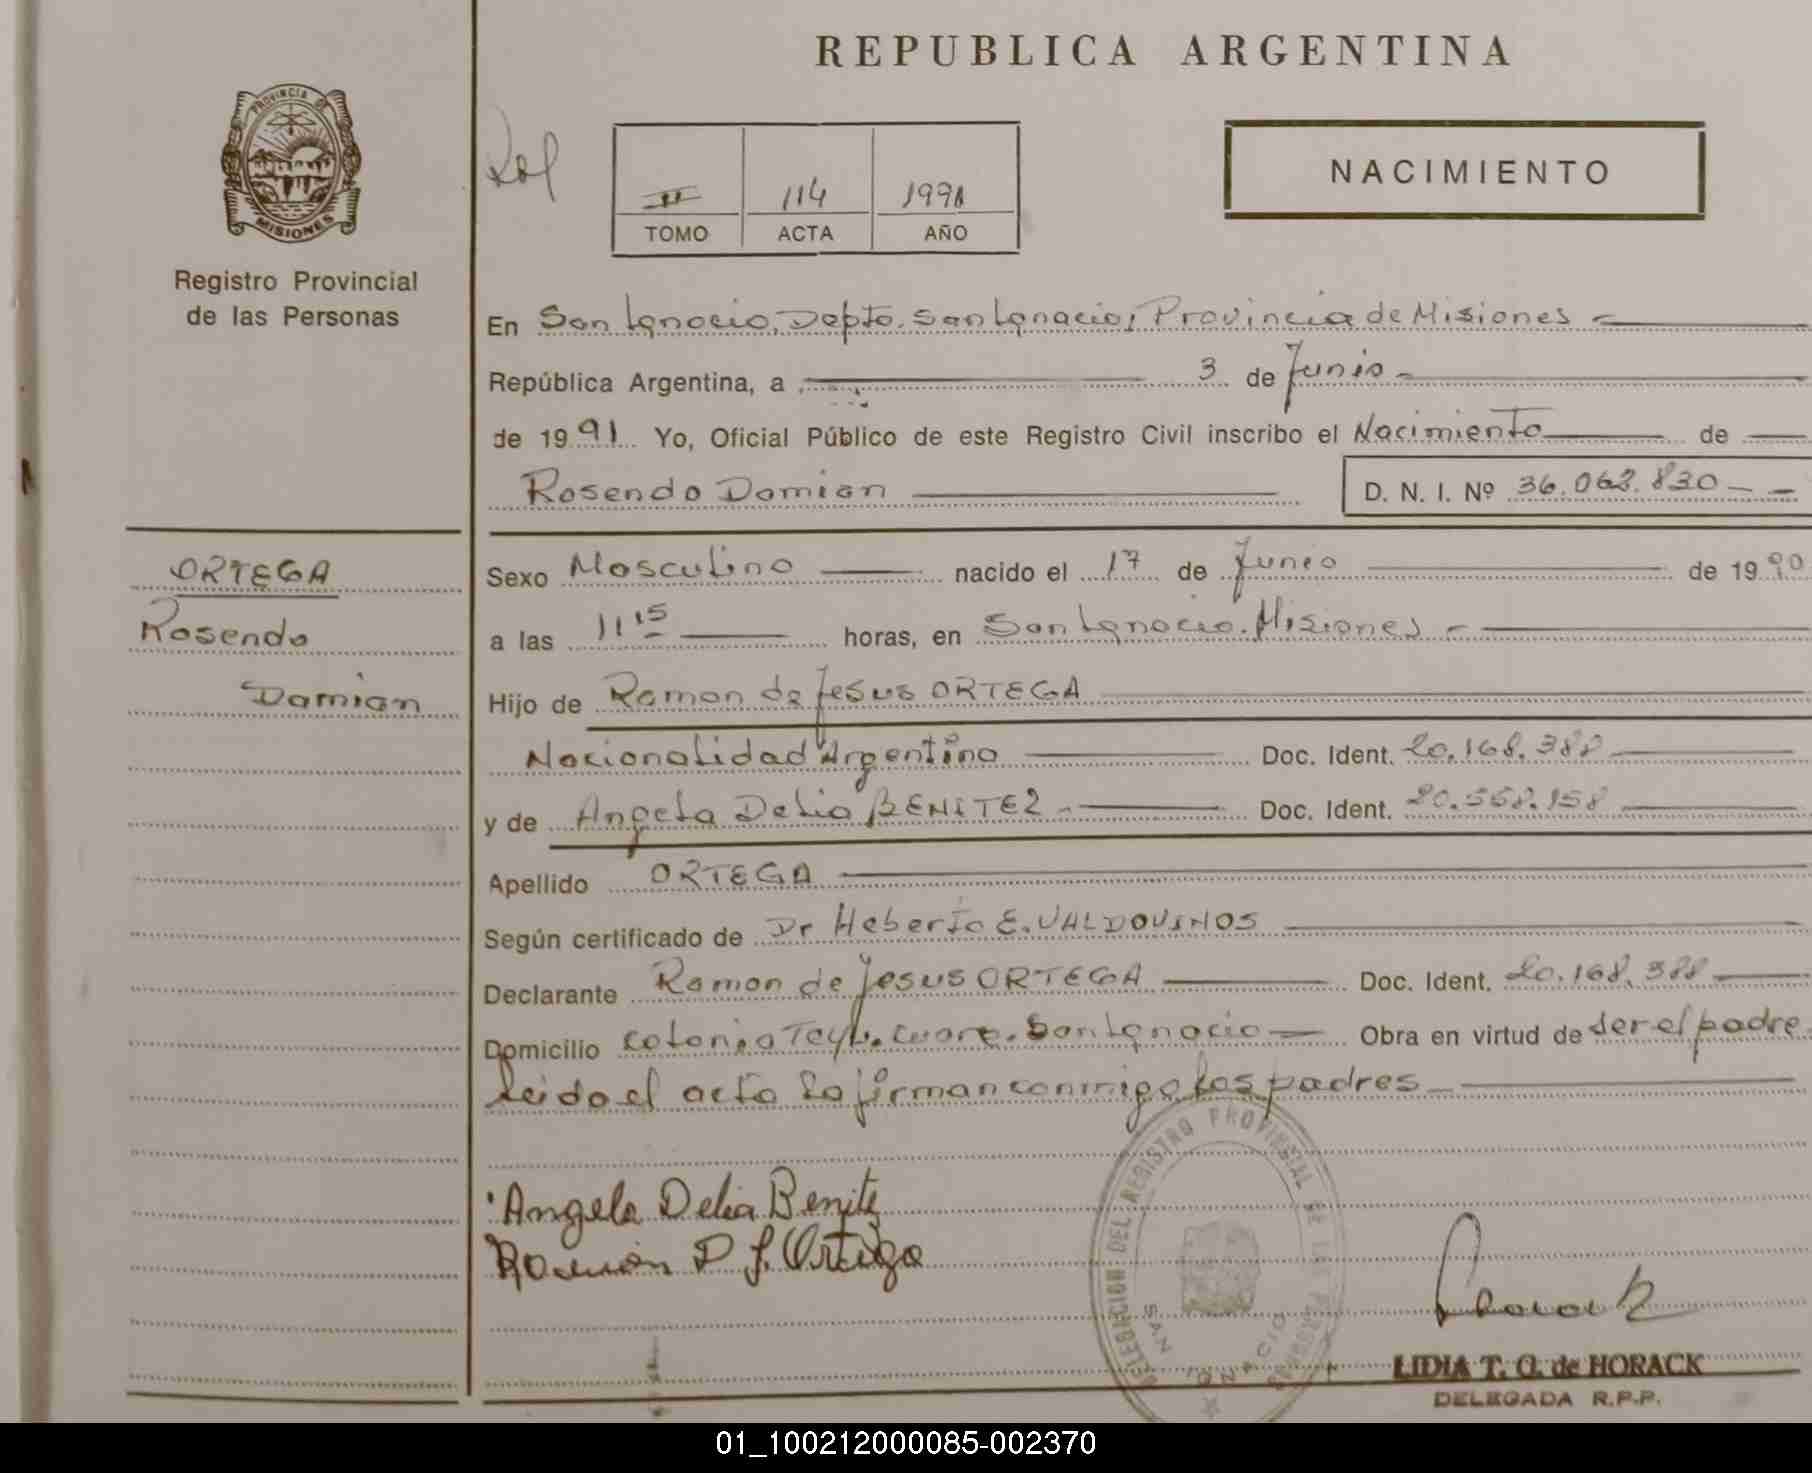 REPUBLICA ARGENTINA
PROVINCIA DE
MISIONES
Registro Provincial
de las Personas
II 114 1991
TOMO ACTA AÑO
NACIMIENTO
En San Ignacio, Depto. San Ignacio, Provincia de Misiones
República Argentina, a 3 de Junio
de 1991 Yo, Oficial Público de este Registro Civil inscribo el Nacimiento de
Rosendo Damian D. N. I. Nº 36.062.830
ORTEGA
Rosendo
Damian
Sexo Masculino nacido el 17 de Junio de 1990
a las 11 15 horas, en San Ignacio. Misiones
Hijo de Ramon de Jesus ORTEGA
Nacionalidad Argentino Doc. Ident. 20.168.388
y de Angela Delia BENITEZ Doc. Ident. 20.558.158
Apellido ORTEGA
Según certificado de Dr Heberto E. VALDOVINOS
Declarante Ramon de Jesus ORTEGA Doc. Ident. 20.168.388
Domicilio colonia Teyu. Cuare. San Ignacio Obra en virtud de ser el padre
Leido el acta la firman conmigo los padres
Angela Delia Benite
Ramón D J. Ortega
DELEGACION DEL REGISTRO PROVINCIAL DE LAS PERSONAS
SAN IGNACIO
Horack
LIDIA T. O. de HORACK
DELEGADA R.P.P.
01_100212000085-002370